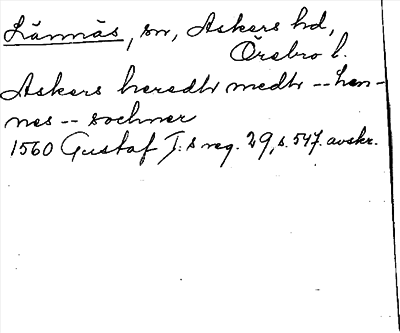 Lännäs, sn, Askers hd,
Örebro l.
Askers heredtr medtr -- Len-
nes -- sochner
1560 Gustaf I:s reg. 29, s. 547. avskr.